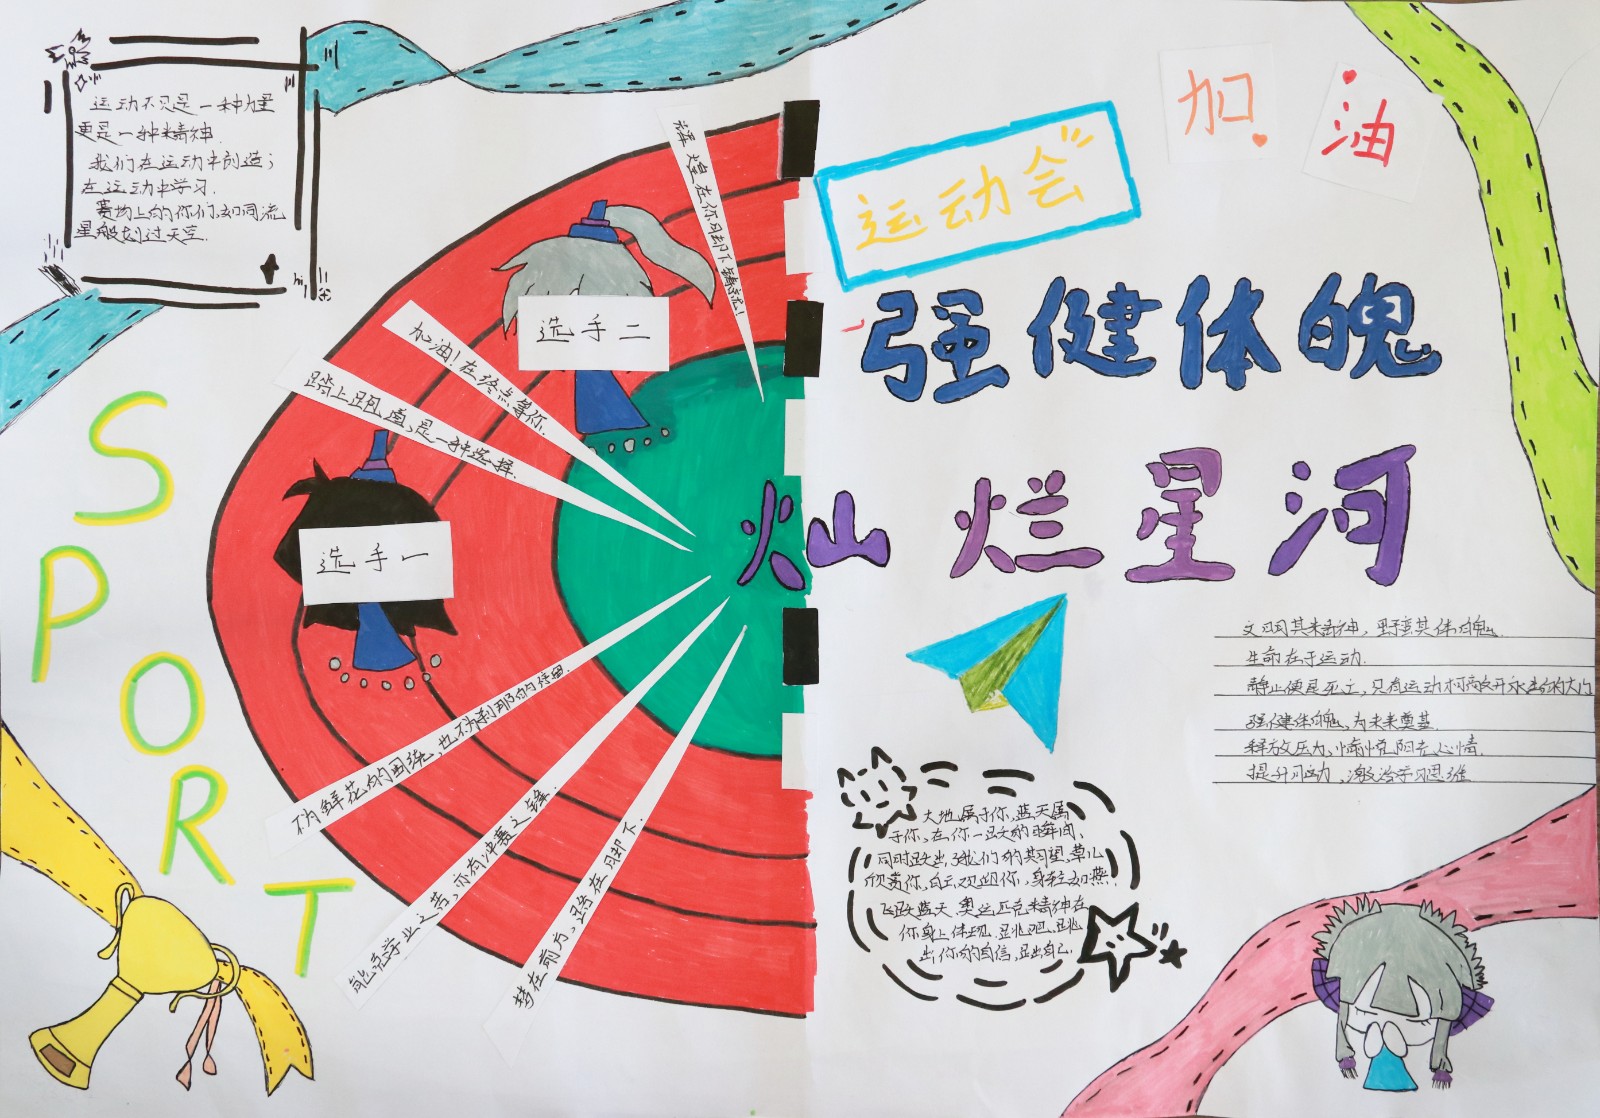 运动不只是一种力量
更是一种精神
我们在运动中创造；
在运动中学习.
赛场上的你们,如同流
星般划过天空.
SPORT
辉煌在你们却下铸就!
加油！在终点等你.
踏上跑道,是一种选择.
选手二
选手一
不为鲜花的围绕,也不为刹那的停留.
能克学业之苦,亦有冲赛之锋.
梦在前方,路在脚下.
加油
运动会
强健体魄
灿烂星河
文明其精神，野蛮其体魄.
生命在于运动.
静止便是死亡,只有运动才能敲开永生的大门
强健体魄,为未来奠基
释放压力,愉悦阳光心情.
提升习动,激活学习思维
大地属于你,蓝天属
于你,在你一跃的瞬间,
同时跃出了我们的期望,草儿
欣赏你,白云观望你,身轻如燕.
飞跃蓝天.奥运匹克精神在
你身上体现,跳吧,跳
出你的自信,跳出自己.